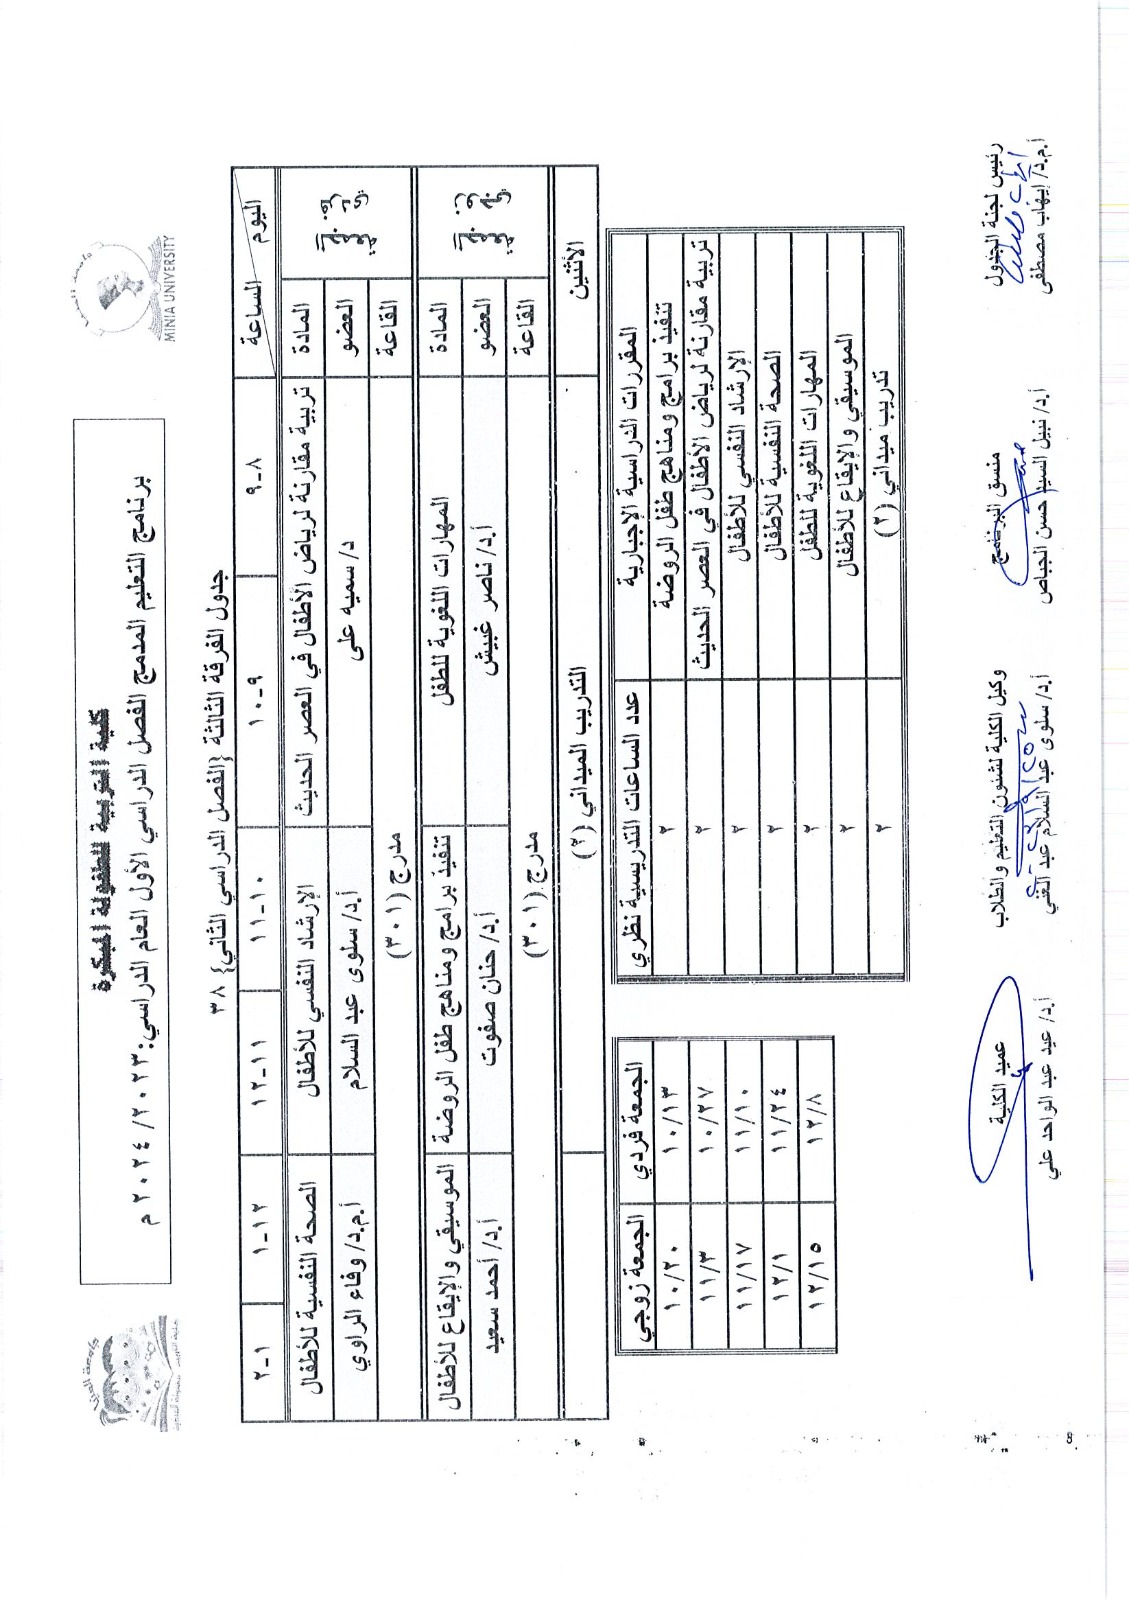 MINIA UNIVERSITY
كلية التربية للطفولة المبكرة
برنامج التعليم المدمج الفصل الدراسي الأول العام الدراسي: ٢٠٢٣/ ٢٠٢٤ م
جدول الفرقة الثالثة {الفصل الدراسي الثاني} ٣٨
اليوم الساعة ٨-٩ ٩-١٠ ١٠-١١ ١١-١٢ ١٢-١ ١-٢
المادة تربية مقارنة لرياض الأطفال في العصر الحديث الإرشاد النفسي للأطفال الصحة النفسية للأطفال
العضو د/ سميه على أ.د/ سلوى عبد السلام أ.م.د/ وفاء الراوي
القاعة مدرج (٣٠١)
المادة المهارات اللغوية للطفل تنفيذ برامج ومناهج طفل الروضة الموسيقي والإيقاع للأطفال
العضو أ.د/ ناصر غبيش أ.د/ حنان صفوت أ.د/ أحمد سعيد
القاعة مدرج (٣٠١)
الأثنين التدريب الميداني (٢)
المقررات الدراسية الإجبارية عدد الساعات التدريسية نظري
تنفيذ برامج ومناهج طفل الروضة ٢
تربية مقارنة لرياض الأطفال في العصر الحديث ٢
الإرشاد النفسي للأطفال ٢
الصحة النفسية للأطفال ٢
المهارات اللغوية للطفل ٢
الموسيقي والإيقاع للأطفال ٢
تدريب ميداني (٢) ٢
الجمعة فردي الجمعة زوجي
١٠/١٣ ١٠/٢٠
١٠/٢٧ ١١/٣
١١/١٠ ١١/١٧
١١/٢٤ ١٢/١
١٢/٨ ١٢/١٥
رئيس لجنة الجدول منسق البرنامج وكيل الكلية لشئون التعليم والطلاب عميد الكلية
أ.م.د/ إيهاب مصطفى أ.د/ نبيل السيد حسن الجباص أ.د/ سلوى عبد السلام عبد الغني أ.د/ عيد عبد الواحد علي